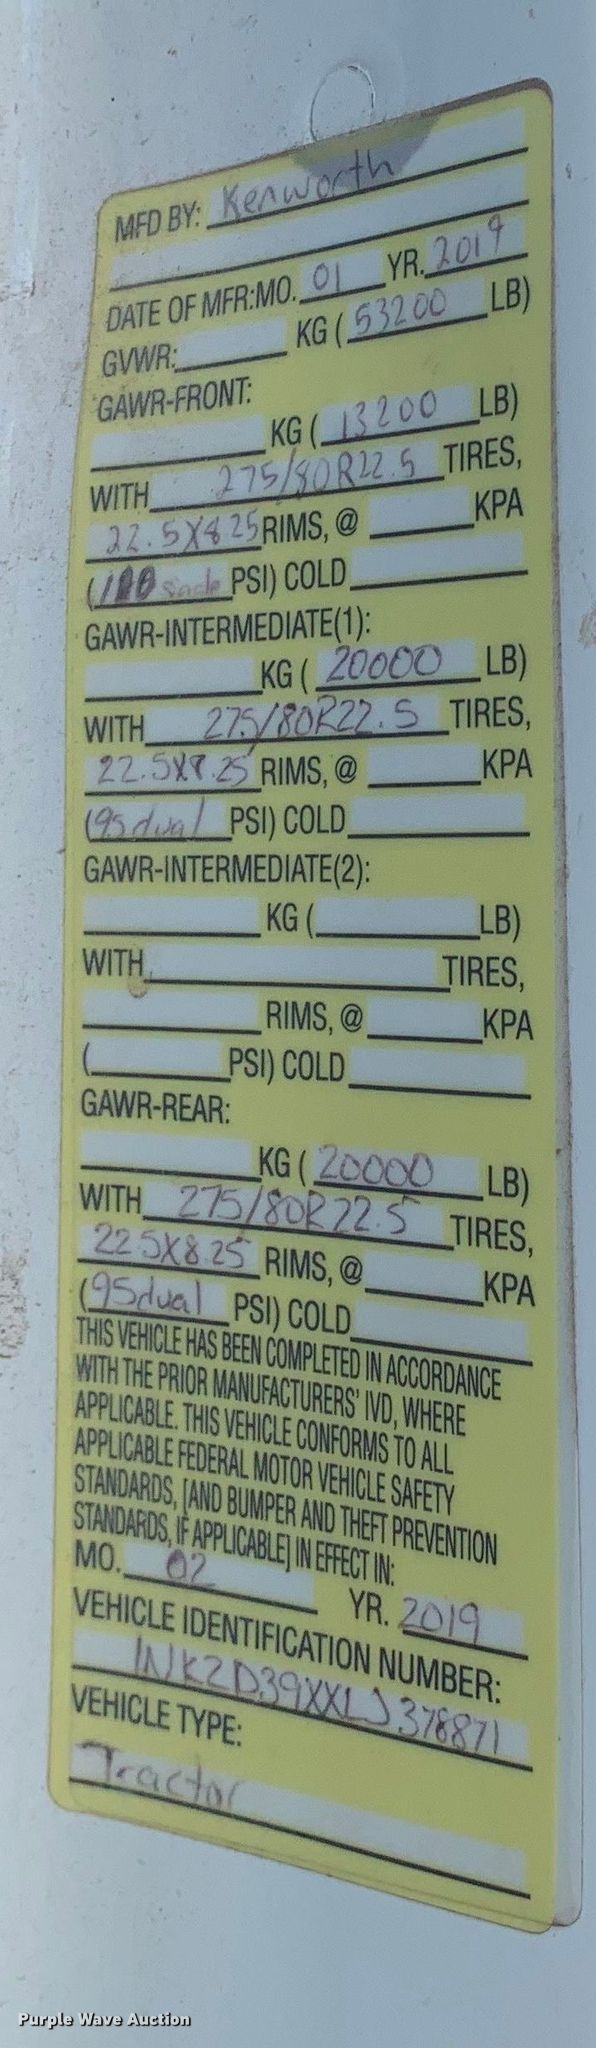 MFD BY: Kenworth
DATE OF MFR:MO. 01 YR. 2019
GVWR: KG (53200 LB)
GAWR-FRONT:
KG (13200 LB)
WITH 275/80R22.5 TIRES,
22.5X8.25 RIMS, @ KPA
( PSI) COLD
GAWR-INTERMEDIATE(1):
KG (20000 LB)
WITH 275/80R22.5 TIRES,
22.5X8.25 RIMS, @ KPA
(95 dual PSI) COLD
GAWR-INTERMEDIATE(2):
KG ( LB)
WITH TIRES,
RIMS, @ KPA
( PSI) COLD
GAWR-REAR:
KG (20000 LB)
WITH 275/80R22.5 TIRES,
22.5X8.25 RIMS, @ KPA
(95 dual PSI) COLD
THIS VEHICLE HAS BEEN COMPLETED IN ACCORDANCE
WITH THE PRIOR MANUFACTURERS' IVD, WHERE
APPLICABLE. THIS VEHICLE CONFORMS TO ALL
APPLICABLE FEDERAL MOTOR VEHICLE SAFETY
STANDARDS, [AND BUMPER AND THEFT PREVENTION
STANDARDS, IF APPLICABLE] IN EFFECT IN:
MO. 02 YR. 2019
VEHICLE IDENTIFICATION NUMBER:
1NKZD39XXLJ378871
VEHICLE TYPE:
Tractor
Purple Wave Auction